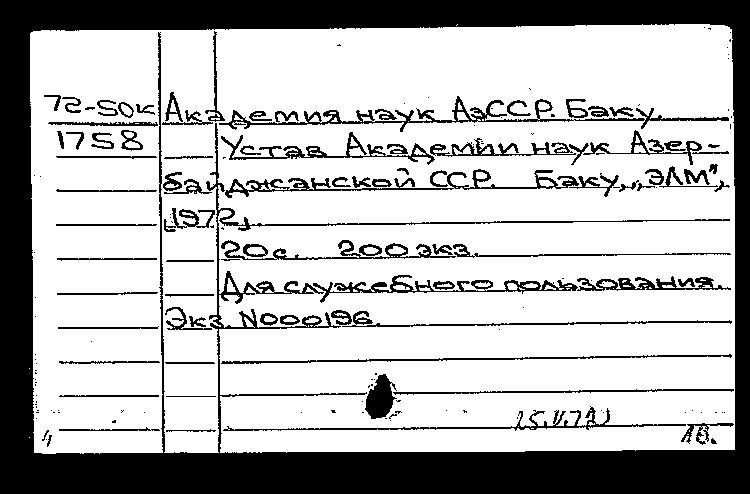 72-50к Академия наук АзССР. Баку.
1758 Устав Академии наук Азер-
байджанской ССР. Баку, „ЭЛМ",
[1972].
20с. 200 экз.
Для служебного пользования.
Экз. N000196.
4